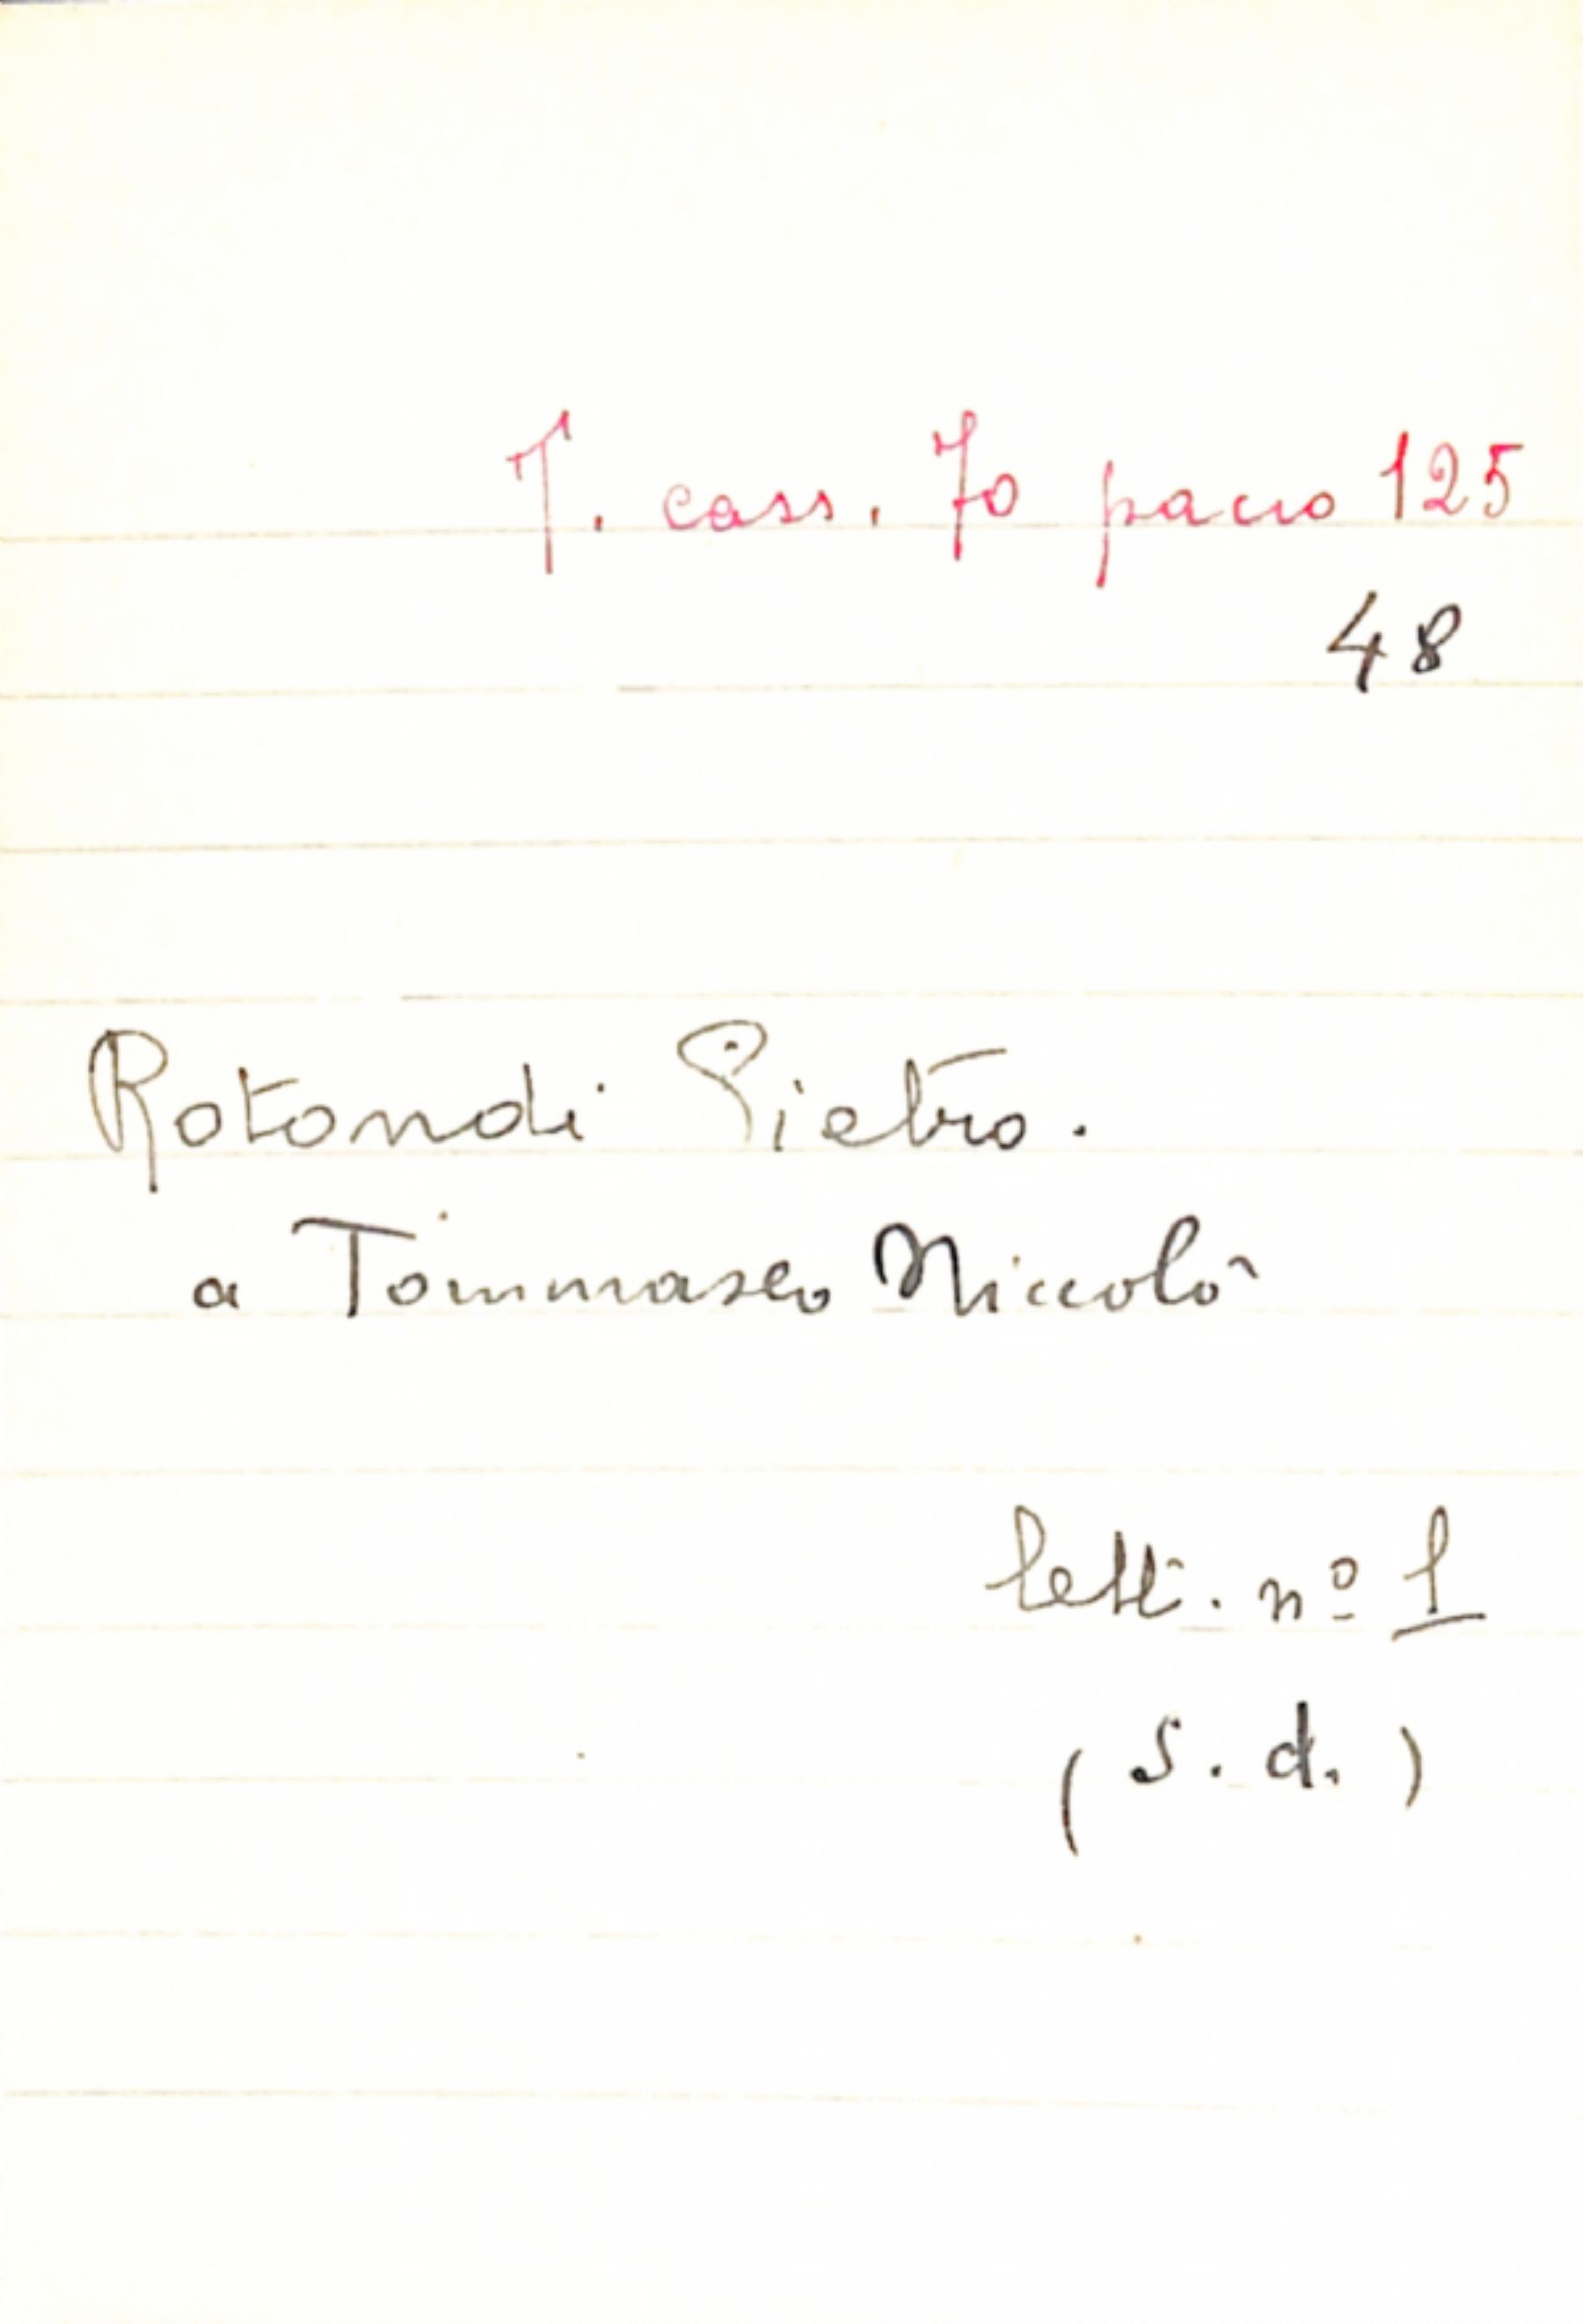 T. cass. 70 pacco 125
48
Rotondi Pietro.
a Tommaseo Niccolò
lett. nº 1
(s. d.)